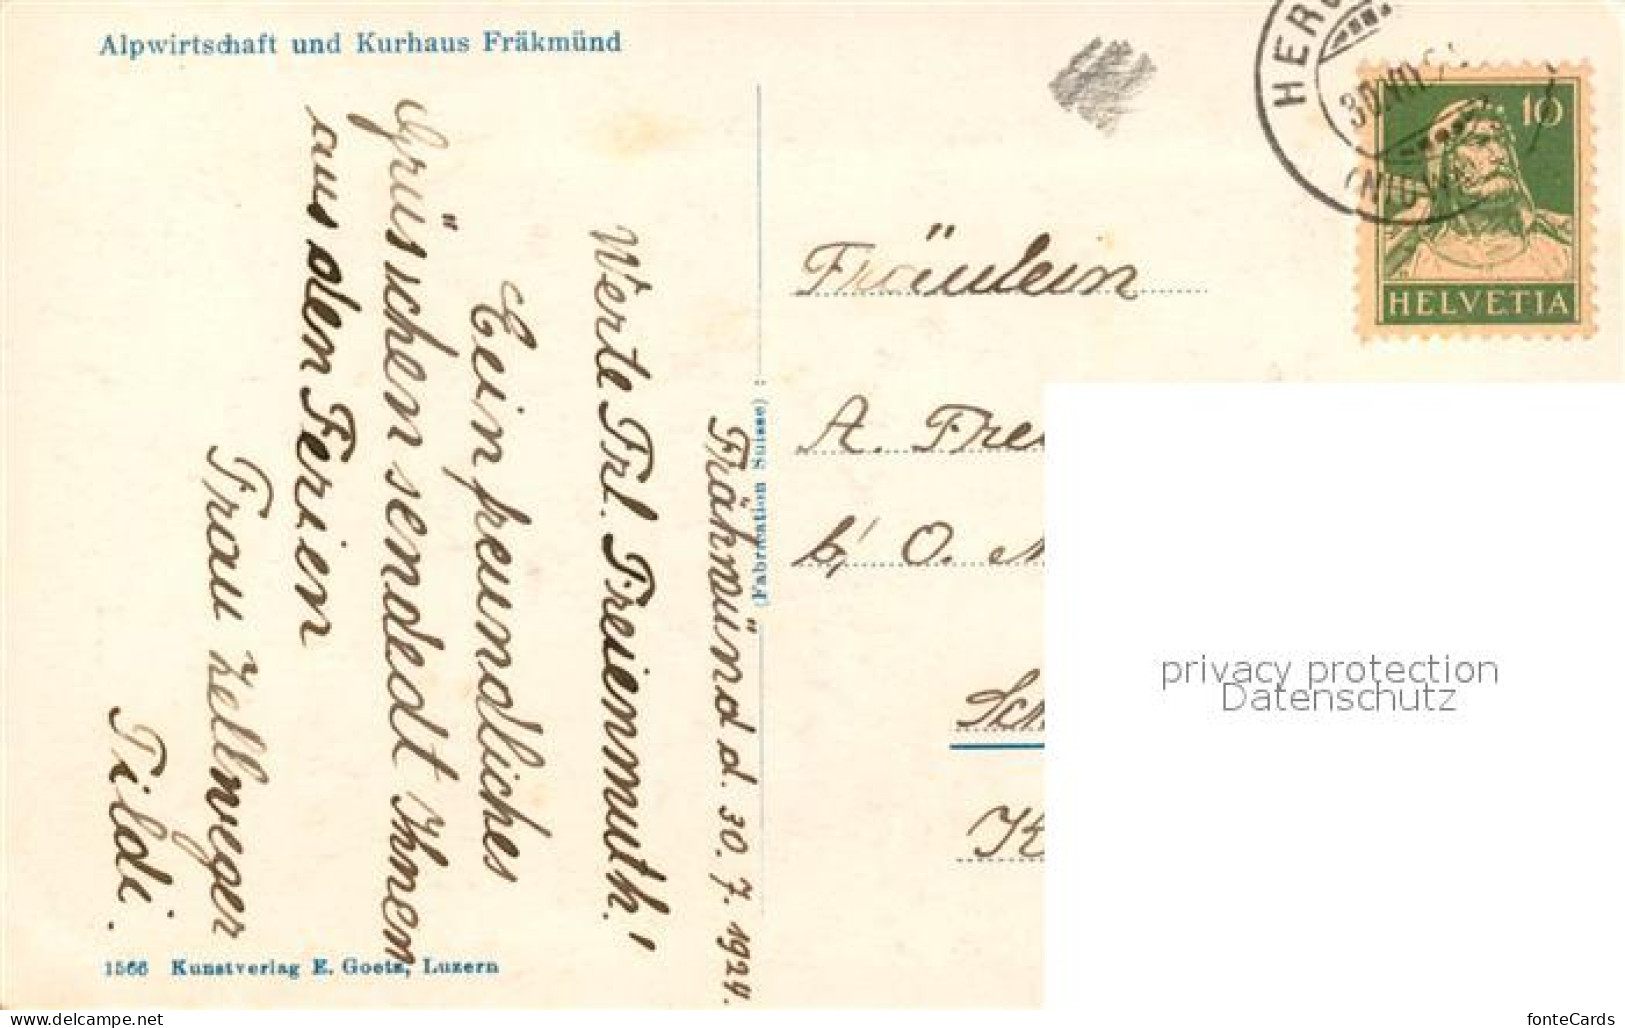 Alpwirtschaft und Kurhaus Fräkmünd
Fräkmünd d. 30. 7. 1924.
Werte Frl. Freienmuth!
Ein freundliches
Grüsschen sendedt Ihnen
aus den Ferien
Frau Zellweger
Tildi.
1566 Kunstverlag E. Goetz, Luzern
(Fabrication Suisse)
HER
30.VII.
(NIDW
10
HELVETIA
Fräulein
A. Fre
b/ O.
Sch
K
privacy protection
Datenschutz
www.delcampe.net
fonteCards